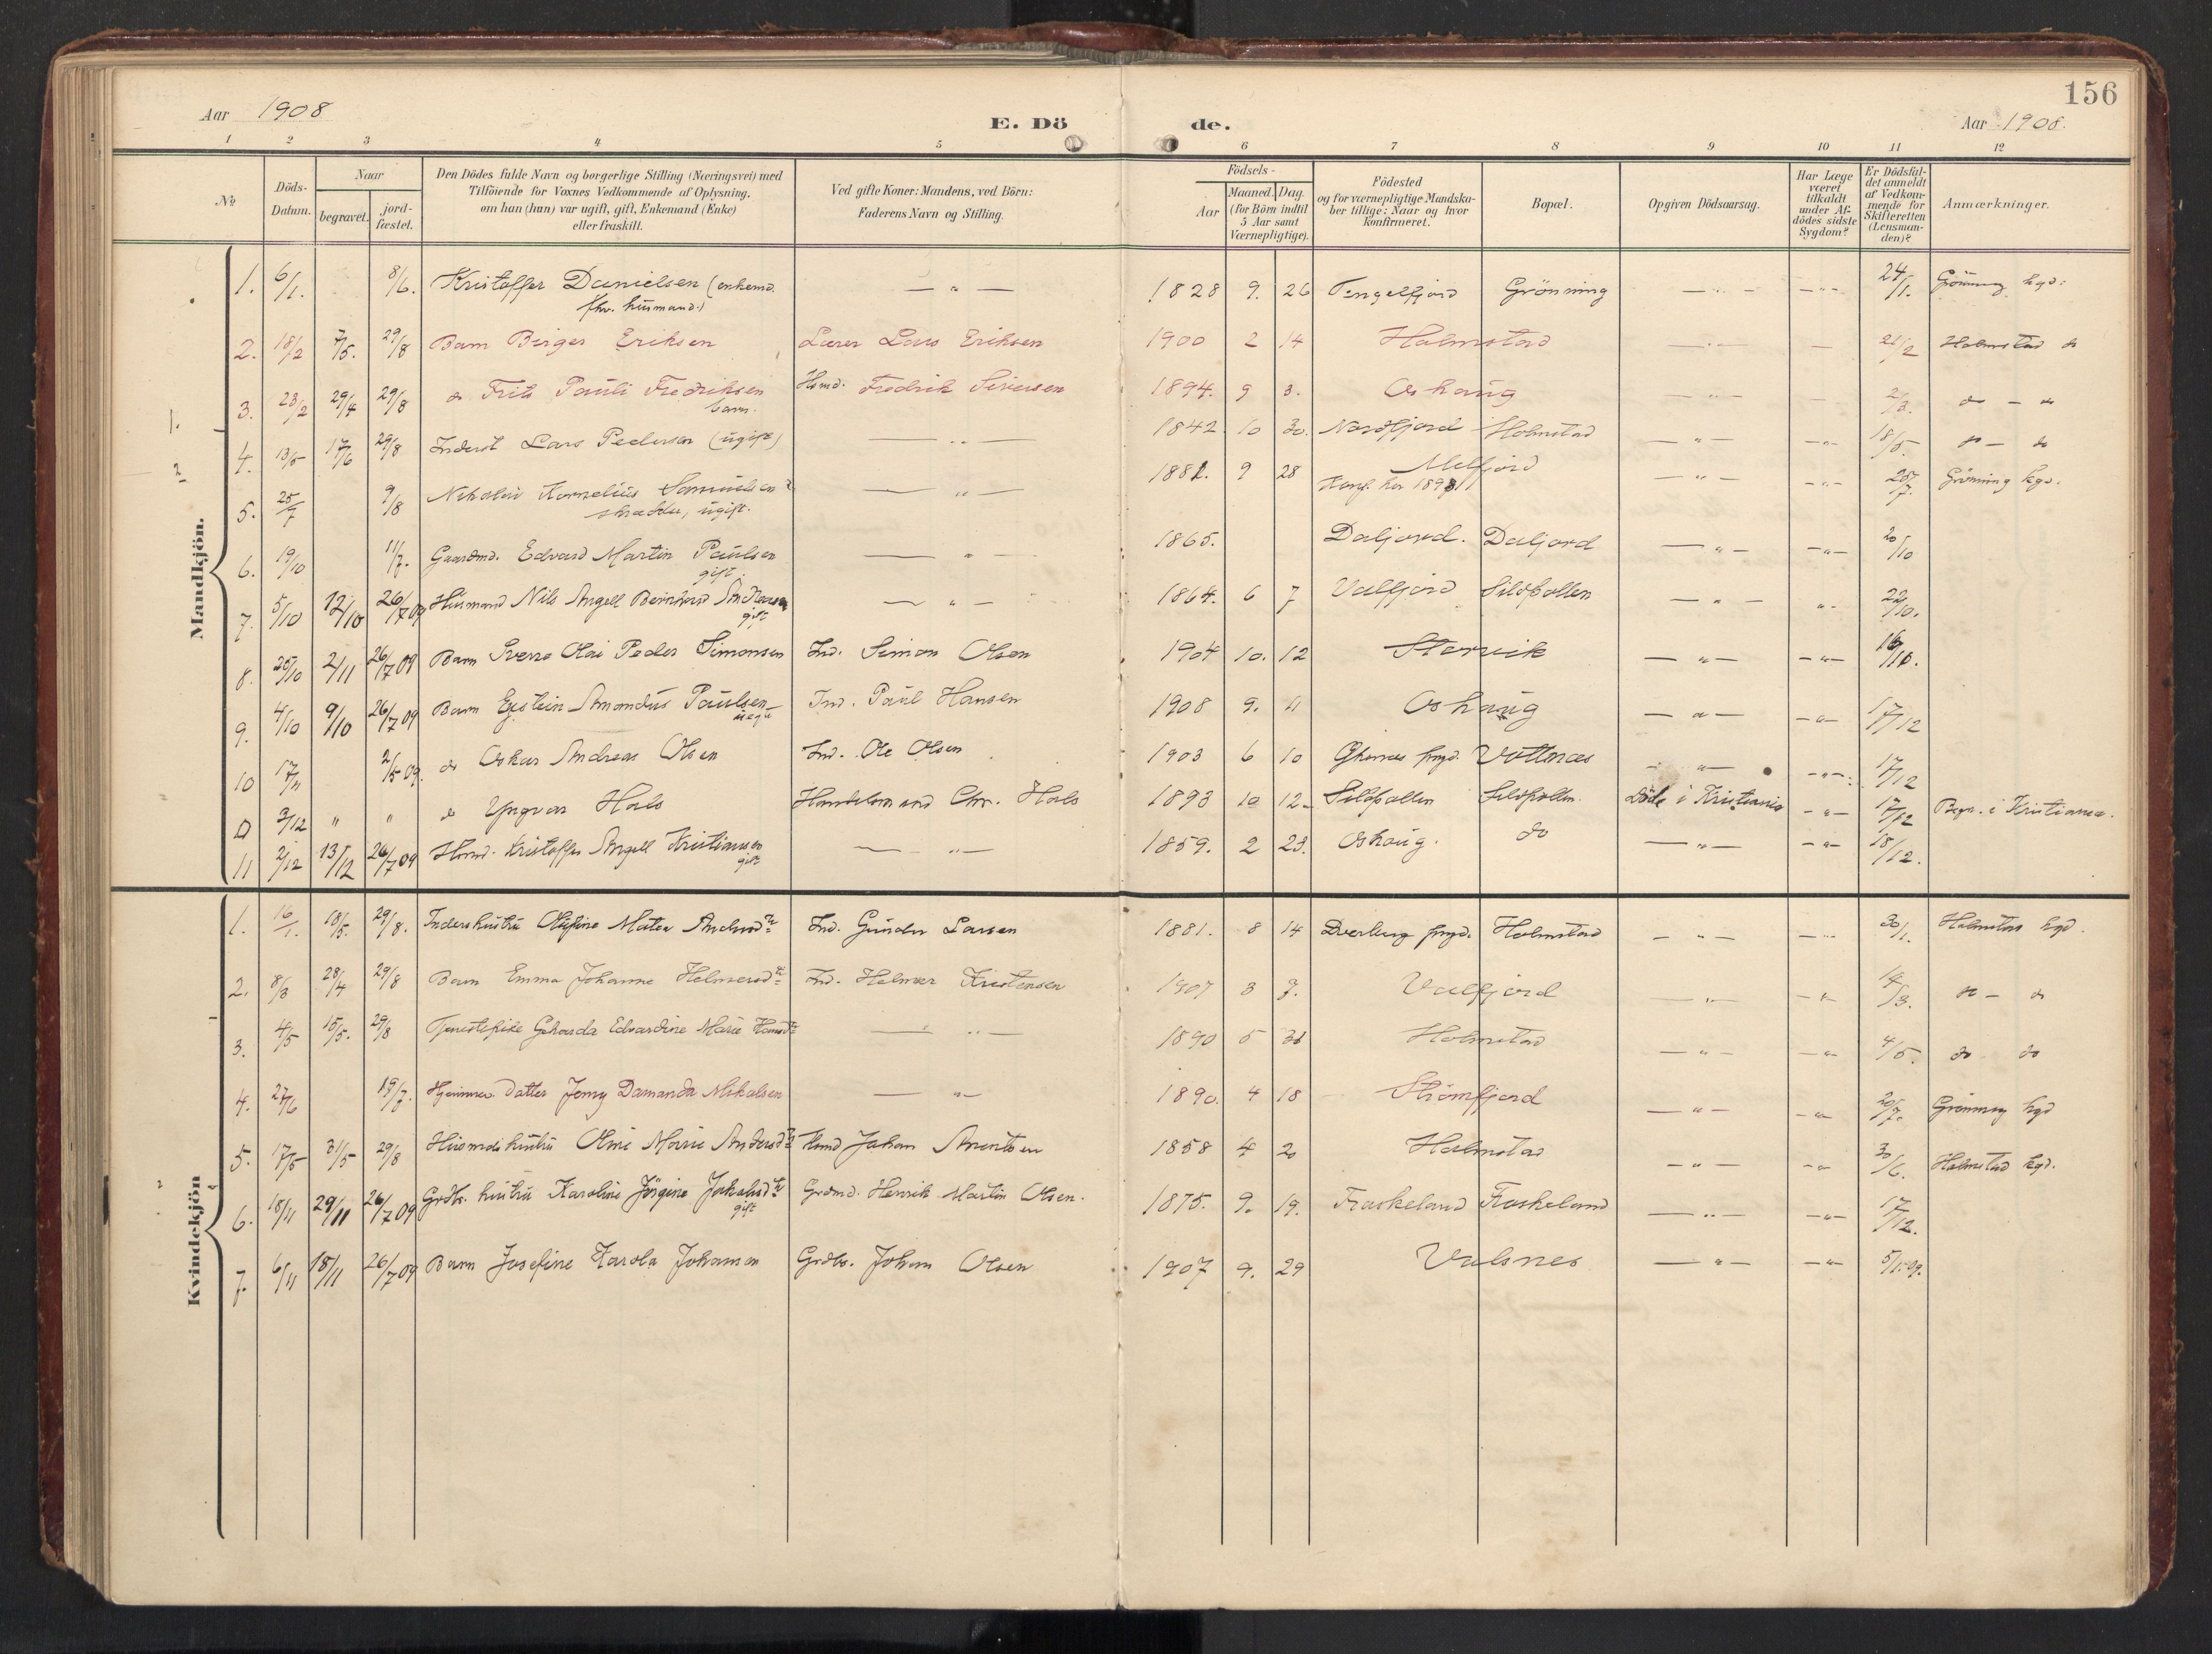 156
Aar 1908
E. Dö
de.
Aar 1908.
1 2 3 4 5 6 7 8 9 10 11 12
№
Döds-
Datum.
Naar
begravet.
jord-
fæstet.
Den Dödes fulde Navn og borgerlige Stilling (Næringsvei) med
Tilföiende for Voxnes Vedkommende af Oplysning,
om han (hun) var ugift, gift, Enkemand (Enke)
eller fraskilt.
Ved gifte Koner: Mandens, ved Börn:
Faderens Navn og Stilling.
Födsels-
Aar
Maaned. Dag.
(for Börn indtil
5 Aar samt
Værnepligtige).
Födested
og for værnepligtige Mandska-
ber tillige: Naar og hvor
Konfirmeret.
Bopæl.
Opgiven Dödsaarsag.
Har Læge
været
tilkaldt
under Af-
dödes sidste
Sygdom?
Er Dödsfal-
det anmeldt
af Vedkom-
mende for
Skifteretten
(Lensman-
den)?
Anmærkninger.
Mandkjön.
1. 6/1. 8/6. Kristoffer Danielsen (enkemd. — " — 1828 9. 26 Tengelfjord Grönning — " — — " — 24/1. Grönning kgd.
fhv. husmand.)
2. 18/2 7/5. 29/8 Barn Birger Eriksen Lærer Lars Eriksen 1900 2 14 Holmstad — " — — 21/2 Holmstad do
3. 23/2 29/4 29/8 do Frits Pauli Fredriksen Hsmd. Fredrik Siversen 1894. 9 3. Oshaug — " — — 2/3. do — do
barn.
4. 13/5 17/6 29/8 Inderst Lars Pedersen (ugift) — " — 1842. 10 30. Nordfjord Holmstad — " — — " — 18/5. do — do
5. 25/7 9/8 Nikolai Kornelius Samuelsen — " — 1881. 9 28 Melfjord — " — — " — 25/7. Grönning kgd.
ugift. Konf. her 1898
6. 19/10 11/7. Gaardmd. Edvard Martin Paulsen — " — 1865. Daljord. Daljord — " — — " — 20/10
gift.
7. 5/10 12/10 26/7 09 Husmand Nils Angell Bernhard Andreasen — " — 1864. 6 7 Valfjord Sildpollen — " — " 22/10.
gift
8. 25/10 2/11 26/7 09 Barn Sverre Olai Peder Simonsen Ind. Simon Olsen 1904 10. 12 Storvik — " — — " —
9. 4/10 9/10 26/7 09 Barn Eystein Amandus Paulsen Ind. Paul Hansen 1908 9. 11 Oshaug — " — — " — 17/12
uegte
10 17/11 2/5 09. do Oskar Andreas Olsen Ind. Ole Olsen 1903 6 10 prgd. Vottnæs — " — — " — 17/12
0 3/12 " " do Yngvar Hals Handelsmand Chr. Hals 1893 10 12. Sildpollen Sildpollen. Döde i Kristiania — " — 17/12 Begr. i Kristiania.
11 2/12 13/12 26/7 09 Hsmd. Kristoffer Angell Kristiansen — " — 1859. 2 23. Oshaug. do — " — — " — 18/12.
gift
Kvindekjön
1. 16/1. 18/5. 29/8. Indersthustru Olufine Matea Andersdtr Ind. Gunder Larsen 1881. 8 14 Dverberg prgd. Holmstad — " — — " — 30/1. Holmstad kgd.
2. 8/3 28/4 29/8 Barn Emma Johanna Helmersdtr Ind. Helmer Kristensen 1907 3 7. Valfjord — " — — " — 14/3. do — do
3. 4/5 15/5. 29/8 Tjenestepike Gerharda Edvardine Marie Hansdtr — " — 1890 5 Holmstad — " — — " — 4/5. do do
4. 27/6 19/7. Hjemmev. Datter Jenny Damanda Mikalsen — " — 1890. 4 18 Strömfjord — " — — " 20/7. Grönning kgd
5. 17/5 31/5 29/8 Husmdshustru Oline Marie Andersdtr Hsmd Johan Arntsen 1858 4 20 Holmstad — " — — " 30/6. Holmstad kgd.
6. 18/11 29/11 26/7 09 Grdbr. hustru Karoline Jörgine Jakobsdtr Grdmd. Henrik Martin Olsen. 1875. 9. 19. Fraskeland Fraskeland — " — — " — 17/12.
gift
7. 6/11 18/11 26/7 09 Barn Josefine Karola Johansen Grdbr. Johan Olsen 1907 9. 29 Valsnes — " — — " — 5/1 09.